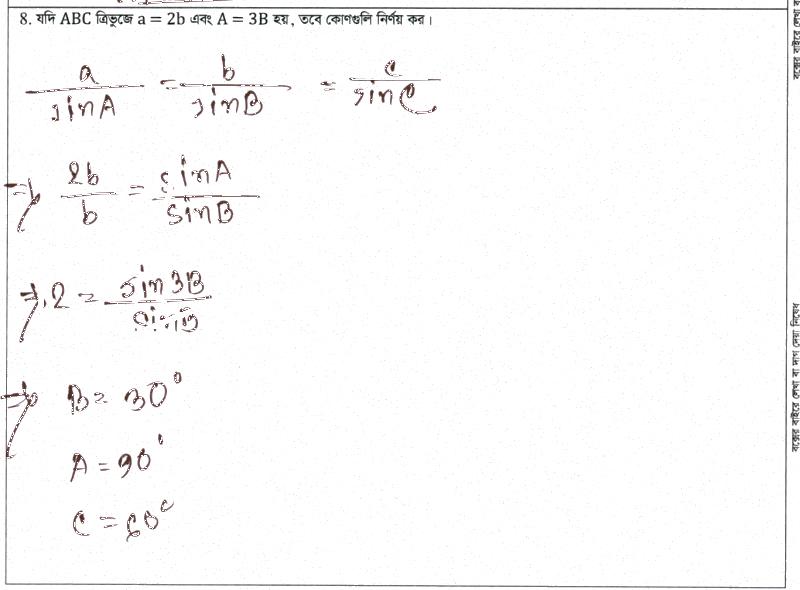 8. যদি ABC ত্রিভুজে a = 2b এবং A = 3B হয়, তবে কোণগুলি নির্ণয় কর।
a/sinA = b/sinB = c/sinC
⇒ 2b/b = sinA/sinB
⇒ 2 = sin3B/sinB
⇒ B = 30°
A = 90°
C = 60°
বক্সের বাইরে লেখা বা দাগ দেয়া নিষেধ